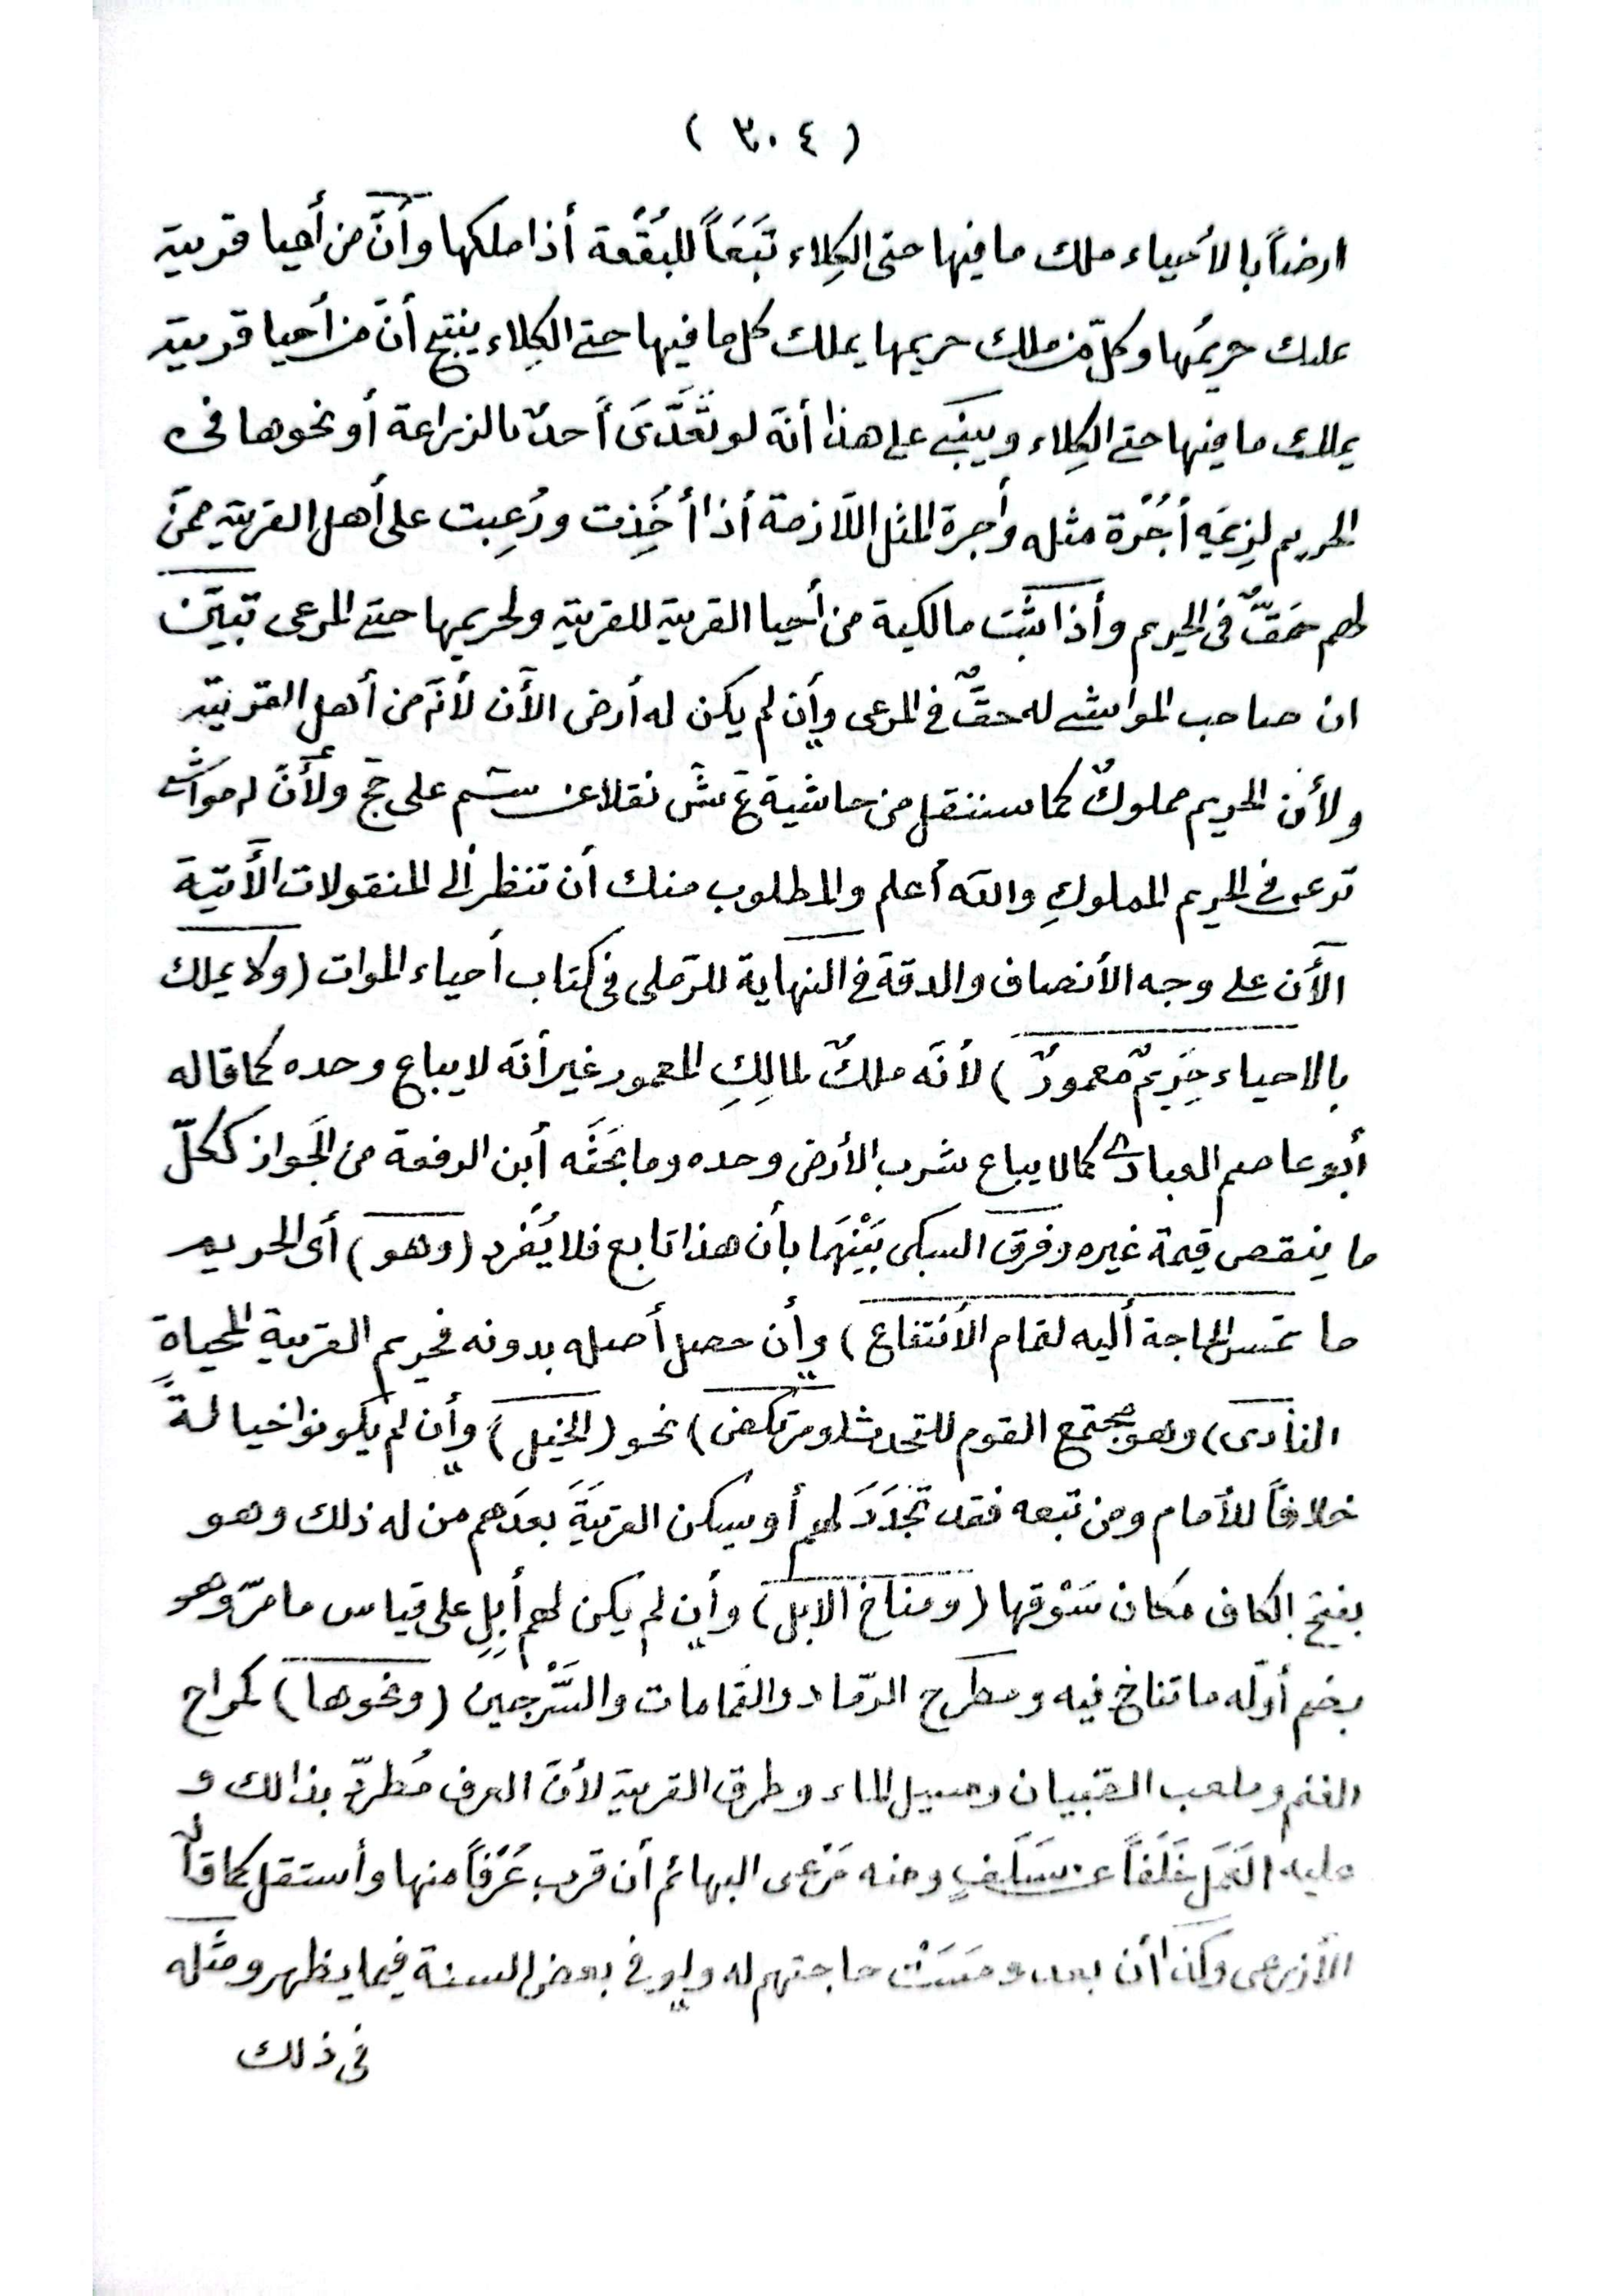 ( ٣٠٤ )
ارضاً بالأحياء ملك ما فيها حتى الكِلاء تَبَعَاً للبُقْعة أذا ملكها وأنَّ من أحيا قرية
يملك حريمُها وكلّ من ملك حريمها يملك كل ما فيها حتى الكِلاء ينتج أنّ من أحيا قرية
يملك ما فيها حتى الكِلاء ويبنى على هذا أنّه لو تَعَدَّىَ أَحدٌ بالزراعة أو نحوها فى
الحريم لزِمَه أُجُرْة مثله وأجرة المثل اللّازمة أذا أُخِذت وُزِعت على أهل القرية ممنّ
لهم حَقٌّ فى الحريم وأذا ثَبَت مالكية من أحيا القرية للقرية ولحريمها حتى المرعى تبيّن
ان صاحب المواشى له حقٌّ فى المرعى وإن لم يكن له أرض الأن لأنّه من أهل القرية
ولأن الحريم مملوكٌ كما سننقل من حاشية ع ش نقلا عن سم على حج ولأنّ له مواشى
ترعى فى الحريم المملوكِ والله أعلم والمطلوب منك أن تنظر ألى المنقولات الأتية
الأن على وجه الأنصاف والدقة فى النهاية للرّملى فى كتاب أحياء الموات (ولا يملك
بالاحياء حَرِيمٌ معمورٌ ) لأنّه ملكٌ لمالِكِ المعمور غير أنّه لا يباع وحده كما قاله
أبو عاصم العبادى كما لا يباع شرب الأرض وحده وما بَحَثَه أبن الرفعة من الجَواز ككلّ
ما ينقص قيمة غيره وفرق السبكى بَيْنِهَما بأن هذا تابع فلا يُفْرد (وهو) أى الحريم
ما تمس الحاجة أليه لتمام الأنتفاع) وإن حصل أصله بدونه فحريم القرية المحياةِ
النادى) وهو مجتمع القوم للتحدث (ومرتكض) نحو (الخيل) وإن لم يكونوا خيالةً
خلافاً للأمام ومن تبعه فقد تَجَدَدَ لهم أو يسكن القريَةَ بعدَهم من له ذلك وهو
بفتح الكاف مكان سَوْقها (ومناخ الابل) وإن لم يكن لهم أبِلٍ على قياس ما مرّ وهو
بضم أوّله ما تناخ فيه ومطرح الرّماد والقمامات والسَّرْجين (ونحوها) كمراح
الغنم وملعب الصّبيان ومسيل الماء وطرق القرية لأنّ العرف مُطردّ بذالك و
عليه العَمَل خَلَفَاً عن سَلَفٍ ومنه مَرْعى البهائم أن قرب عُرْفاً منها وأستقل كما قاله
الأذرعى وكذا أن بعد ومَسَتْ حاجتهم له ولو فى بعض السنة فيما يظهر ومثله
فى ذلك